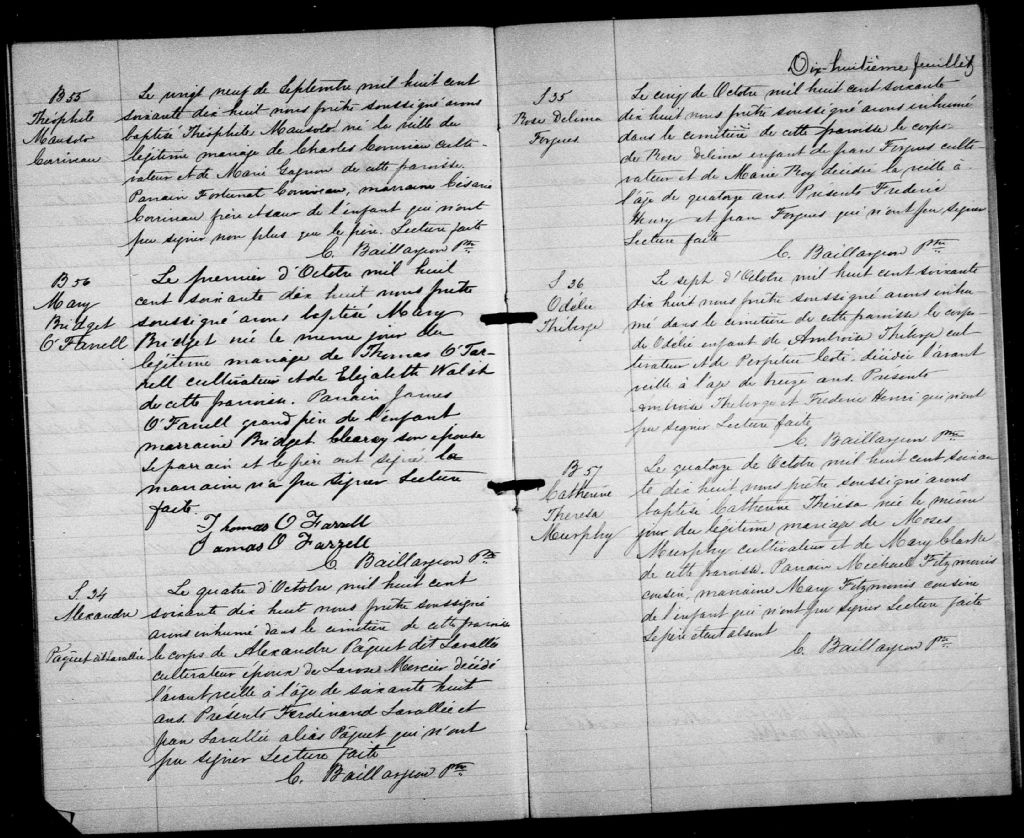 B 55
Théophile
Mansolo
Corriveau
Le vingt neuf de Septembre mil huit cent
soixante dix huit nous prêtre soussigné avons
baptisé Théophile Mansolo né la veille du
légitime mariage de Charles Corriveau culti-
vateur et de Marie Gagnon de cette paroisse.
Parrain Fortunat Corriveau, marraine Césarie
Corriveau frère et sœur de l'enfant qui n'ont
pu signer non plus que le père. Lecture faite
C. Baillargeon Ptre
B 56
Mary
Bridget
O'Farrell
Le premier d'Octobre mil huit
cent soixante dix huit nous prêtre
soussigné avons baptisé Mary
Bridget née le même jour du
légitime mariage de Thomas O'Far-
rell cultivateur et de Elizabeth Walsh
de cette paroisse. Parrain James
O'Farrell grand père de l'enfant
marraine Bridget Clearey son épouse
Le parrain et le père ont signé la
marraine n'a pu signer Lecture
faite
Thomas O Farrell
James O Farrell
C. Baillargeon Ptre
S 34
Alexandre
Pâquet dit Lavallée
Le quatre d'Octobre mil huit cent
soixante dix huit nous prêtre soussigné
avons inhumé dans le cimetière de cette paroisse
le corps de Alexandre Pâquet dit Lavallée
cultivateur époux de Mercier décédé
l'avant veille à l'âge de soixante huit
ans. Présents Ferdinand Lavallée et
Jean Lavallée alias Pâquet qui n'ont
pu signer Lecture faite
C. Baillargeon Ptre
Dix-huitième feuillet
S 35
Rose Délima
Forgues
Le cinq de Octobre mil huit cent soixante
dix huit nous prêtre soussigné avons inhumé
dans le cimetière de cette paroisse le corps
de Rose Délima enfant de Jean Forgues culti-
vateur et de Marie Roy décédée la veille à
l'âge de quatorze ans. Présents Frédéric
Henry et Jean Forgues qui n'ont pu signer
Lecture faite
C. Baillargeon Ptre
S 36
Odélie
Théberge
Le sept d'Octobre mil huit cent soixante
dix huit nous prêtre soussigné avons inhu-
mé dans le cimetière de cette paroisse le corps
de Odélie enfant de Ambroise Théberge cul
tivateur et de Perpétue Coté décédée l'avant
veille à l'âge de treize ans. Présents
Ambroise Théberge et Frédéric Henri qui n'ont
pu signer Lecture faite
C. Baillargeon Ptre
B 57
Catherine
Theresa
Murphy
Le quatorze de Octobre mil huit cent soixan
te dix huit nous prêtre soussigné avons
baptisé Catherine Thérèsa née le même
jour du légitime mariage de Moses
Murphy cultivateur et de Mary Clarke
de cette paroisse. Parrain Michael Fitzmorris
cousin, marraine Mary Fitzmorris cousine
de l'enfant qui n'ont pu signer Lecture faite
Le père étant absent
C. Baillargeon Ptre